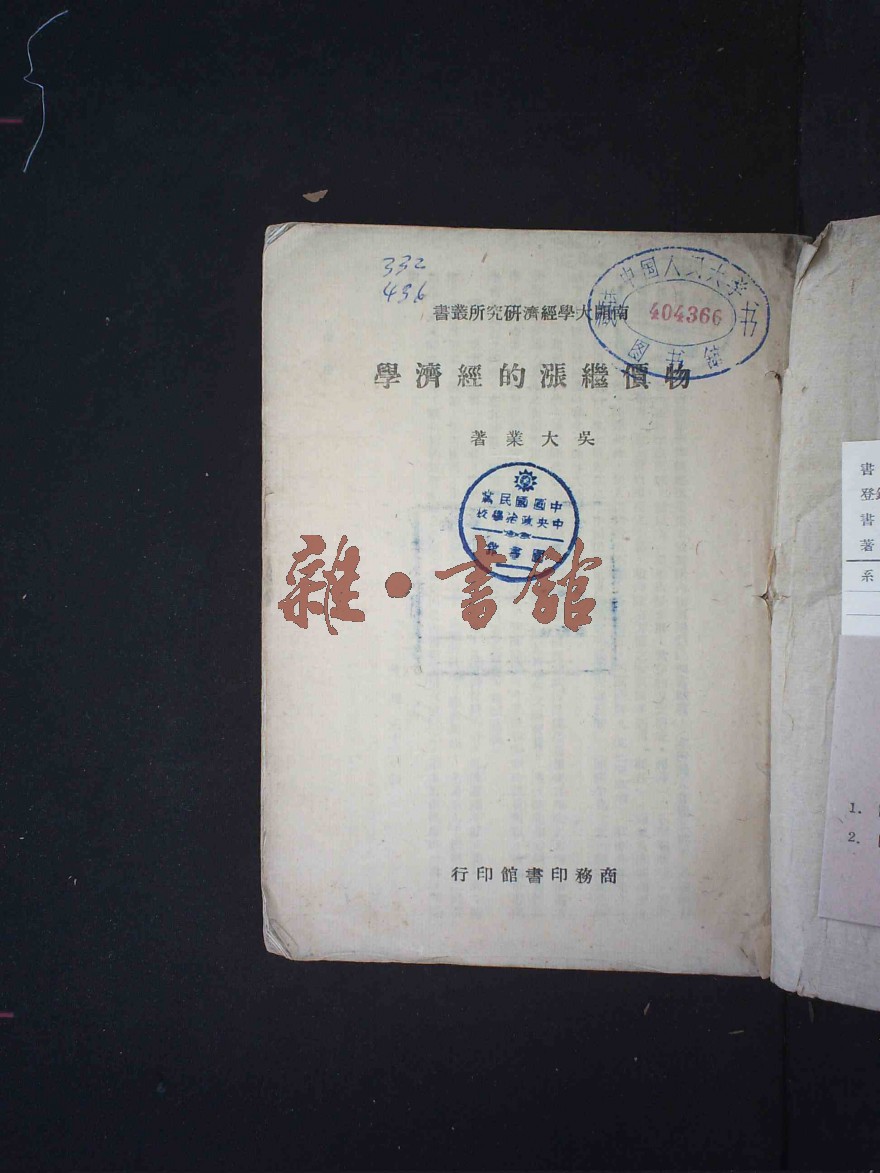 332
436
中国人民大学
藏 404366 书
图书馆
南開大學經濟研究所叢書
物價繼漲的經濟學
吳大業著
中國國民黨
中央政治學校
圖書館
雜·書館
商務印書館印行
書
登錄
書
著
系
1.
2.